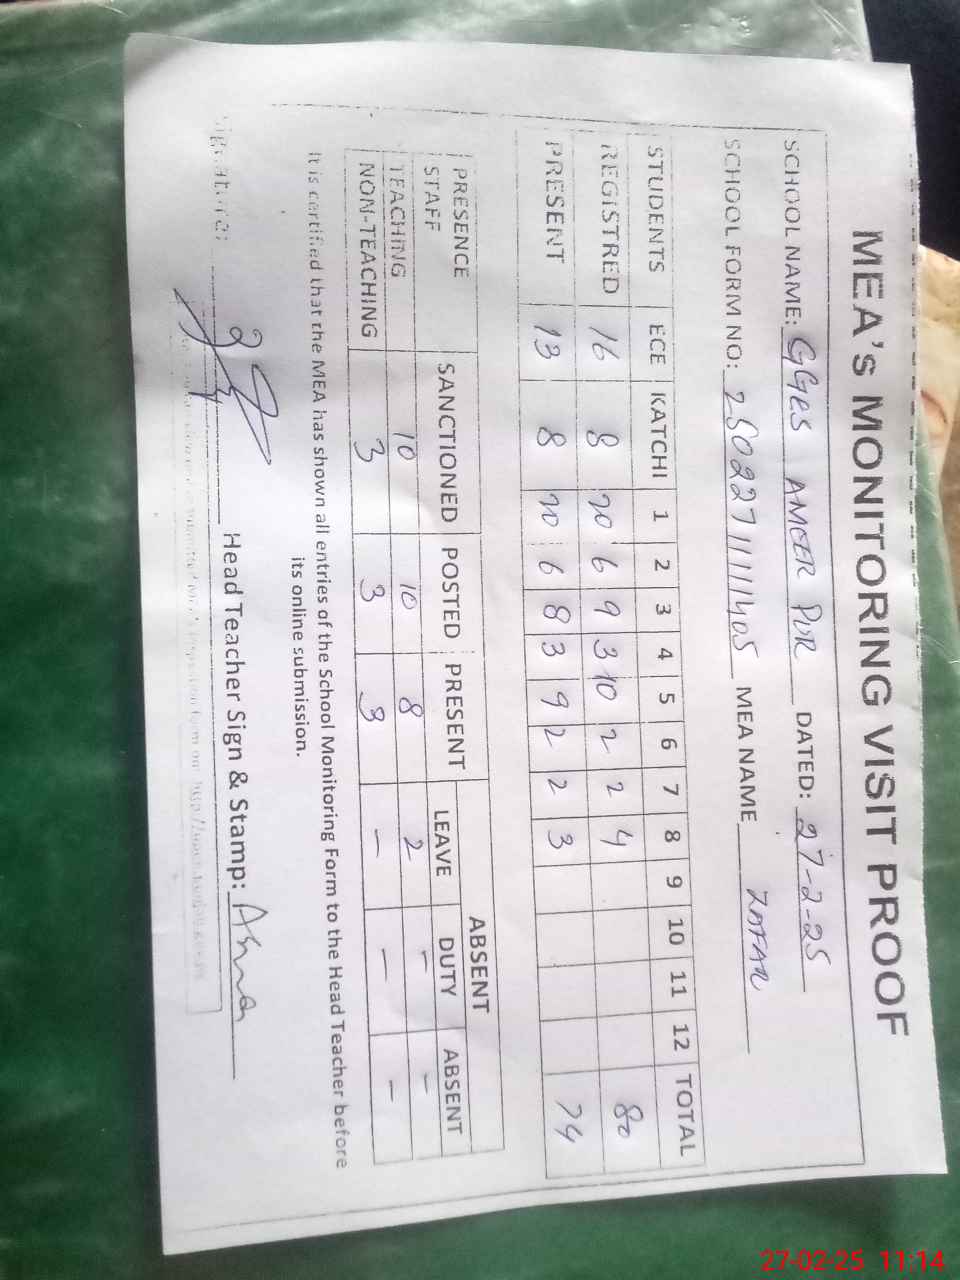 MEA's MONITORING VISIT PROOF
SCHOOL NAME: GGES AMEER PUR DATED: 27-2-25
SCHOOL FORM NO: 250227111111405 MEA NAME ZAFAR
STUDENTS ECE KATCHI 1 2 3 4 5 6 7 8 9 10 11 12 TOTAL
REGISTRED 16 8 20 6 9 3 10 2 2 4 80
PRESENT 13 8 20 6 8 3 9 2 2 3 74
PRESENCE STAFF SANCTIONED POSTED PRESENT ABSENT
LEAVE DUTY ABSENT
TEACHING 10 10 8 2 - -
NON-TEACHING 3 3 3 - - -
It is certified that the MEA has shown all entries of the School Monitoring Form to the Head Teacher before
its online submission.
Signature: Head Teacher Sign & Stamp:
27-02-25 11:14